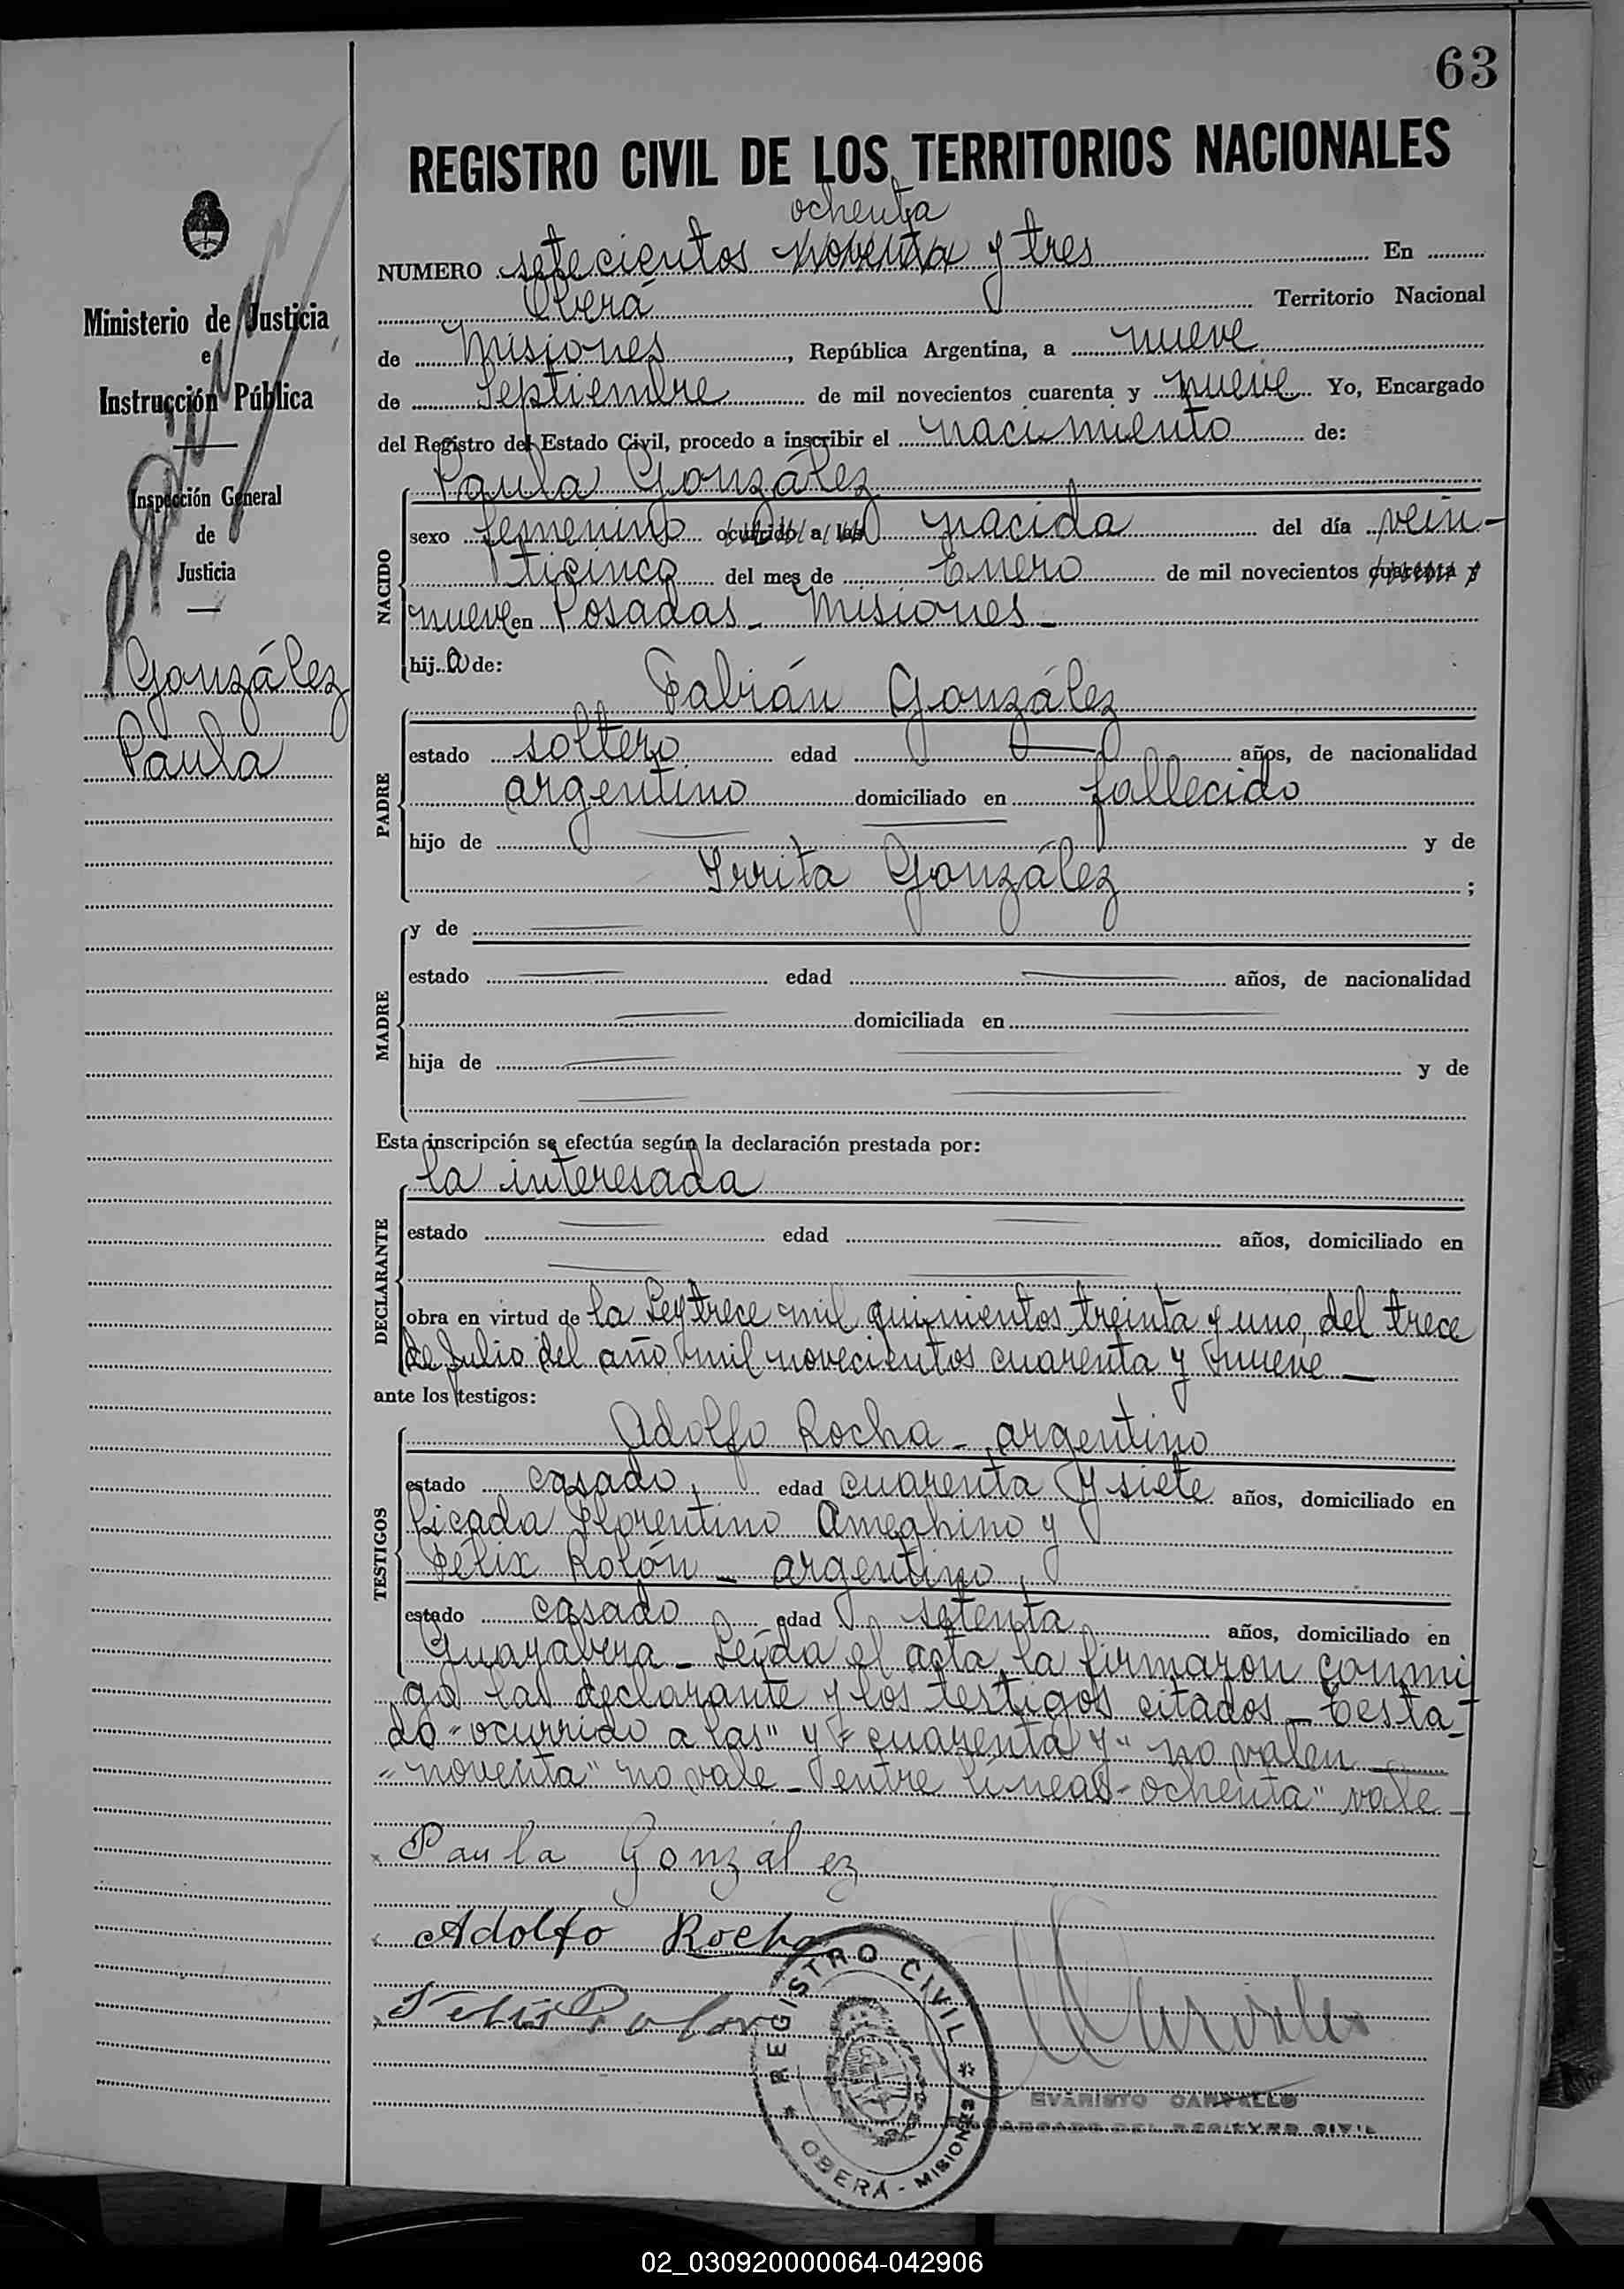 63
REGISTRO CIVIL DE LOS TERRITORIOS NACIONALES
ochenta
NUMERO setecientos noventa y tres En
Oberá Territorio Nacional
de Misiones, República Argentina, a nueve
de Septiembre de mil novecientos cuarenta y nueve Yo, Encargado
del Registro del Estado Civil, procedo a inscribir el nacimiento de:
Paula González
NACIDO
sexo femenino ocurrido a las nacida del día vein-
ticinco del mes de Enero de mil novecientos cuarenta y
nueve en Posadas - Misiones -
hij a de:
Fabián González
PADRE
estado soltero edad años, de nacionalidad
argentino domiciliado en fallecido
hijo de y de
González ;
MADRE
y de
estado edad años, de nacionalidad
domiciliada en
hija de y de
Esta inscripción se efectúa según la declaración prestada por:
la interesada
DECLARANTE
estado edad años, domiciliado en
obra en virtud de la Ley trece mil quinientos treinta y uno, del trece
de Julio del año mil novecientos cuarenta y nueve -
ante los testigos:
Adolfo Rocha - argentino
TESTIGOS
estado casado, edad cuarenta y siete años, domiciliado en
Picada Florentino Ameghino y
Félix Rolón - argentino,
estado casado edad setenta años, domiciliado en
Guayabera - Leída el acta, la firmaron conmi
go la declarante y los testigos citados - Testa-
do "ocurrido a las" y "cuarenta y" no valen
"noventa" no vale - entre líneas "ochenta" vale -
Paula González
Adolfo Rocha
Felix Rolon
REGISTRO CIVIL
OBERÁ - MISIONES
EVARISTO CARVALLO
ENCARGADO DEL REGISTRO CIVIL
Ministerio de Justicia
e
Instrucción Pública
Inspección General
de
Justicia
González
Paula
02_030920000064-042906